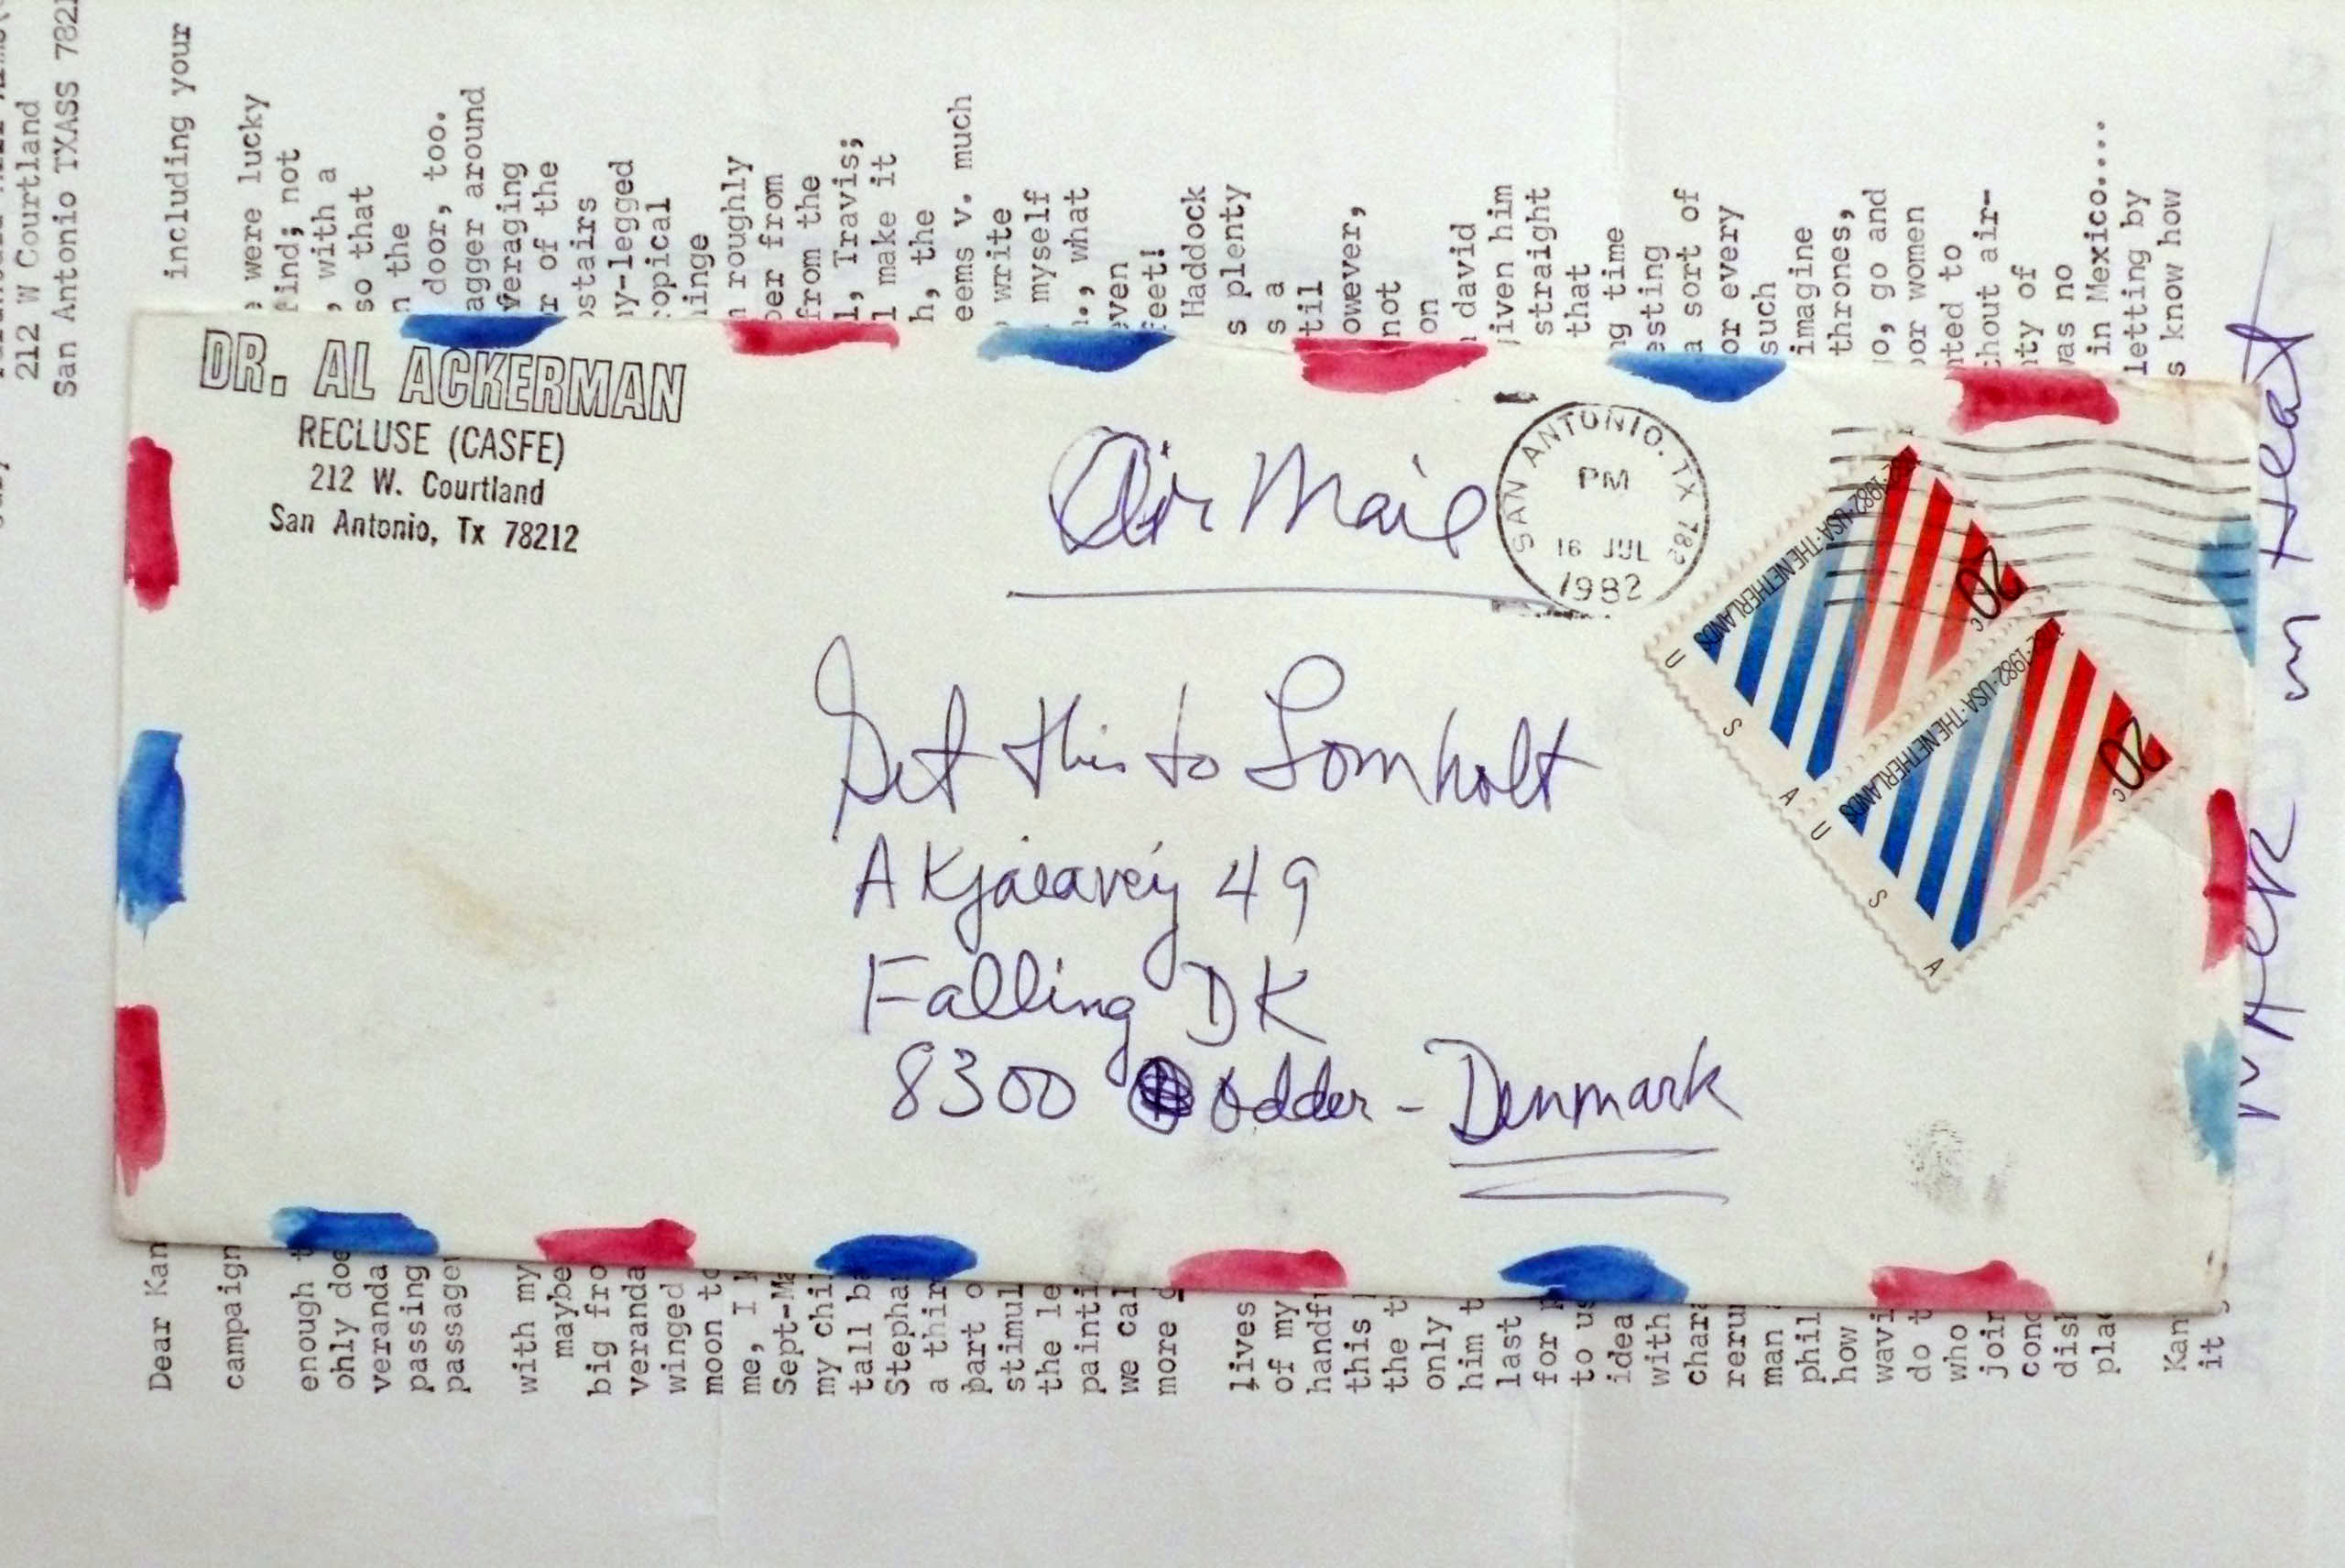 DR. AL ACKERMAN
RECLUSE (CASFE)
212 W. Courtland
San Antonio, Tx 78212
Air Mail
SAN ANTONIO, TX 782
PM
16 JUL
1982
1982·USA·THE NETHERLANDS
20c
USA
1982·USA·THE NETHERLANDS
20c
USA
Get this to Lomholt
49
Falling DK
8300 Odder - Denmark
212 W Courtland
San Antonio TXASS 7821
Dear Kan
including your
campaign
were lucky
enough
find; not
only doe
, with a
veranda
so that
passing
n the
passage
door, too.
agger around
with my
veraging
maybe
r of the
big fro
stairs
veranda
y-legged
winged
opical
moon to
inge
me, I
n roughly
Sept-Ma
er from
my chil
from the
tall b
l, Travis;
Stepha
l make it
a thir
h, the
part o
eems v. much
stimul
write
the le
myself
painti
, what
we cal
even
more
feet!
Haddock
lives
s plenty
of my
s a
handf
til
this
owever,
the t
not
only
on
him t
david
last
iven him
for
straight
to us
that
idea
ng time
with
esting
char
a sort of
reru
or every
man
such
phil
imagine
how
thrones,
wavi
o, go and
do t
or women
who
ted to
join
hout air-
conc
ty of
dis
was no
pla
in Mexico....
letting by
Kan
s know how
it
in Heat